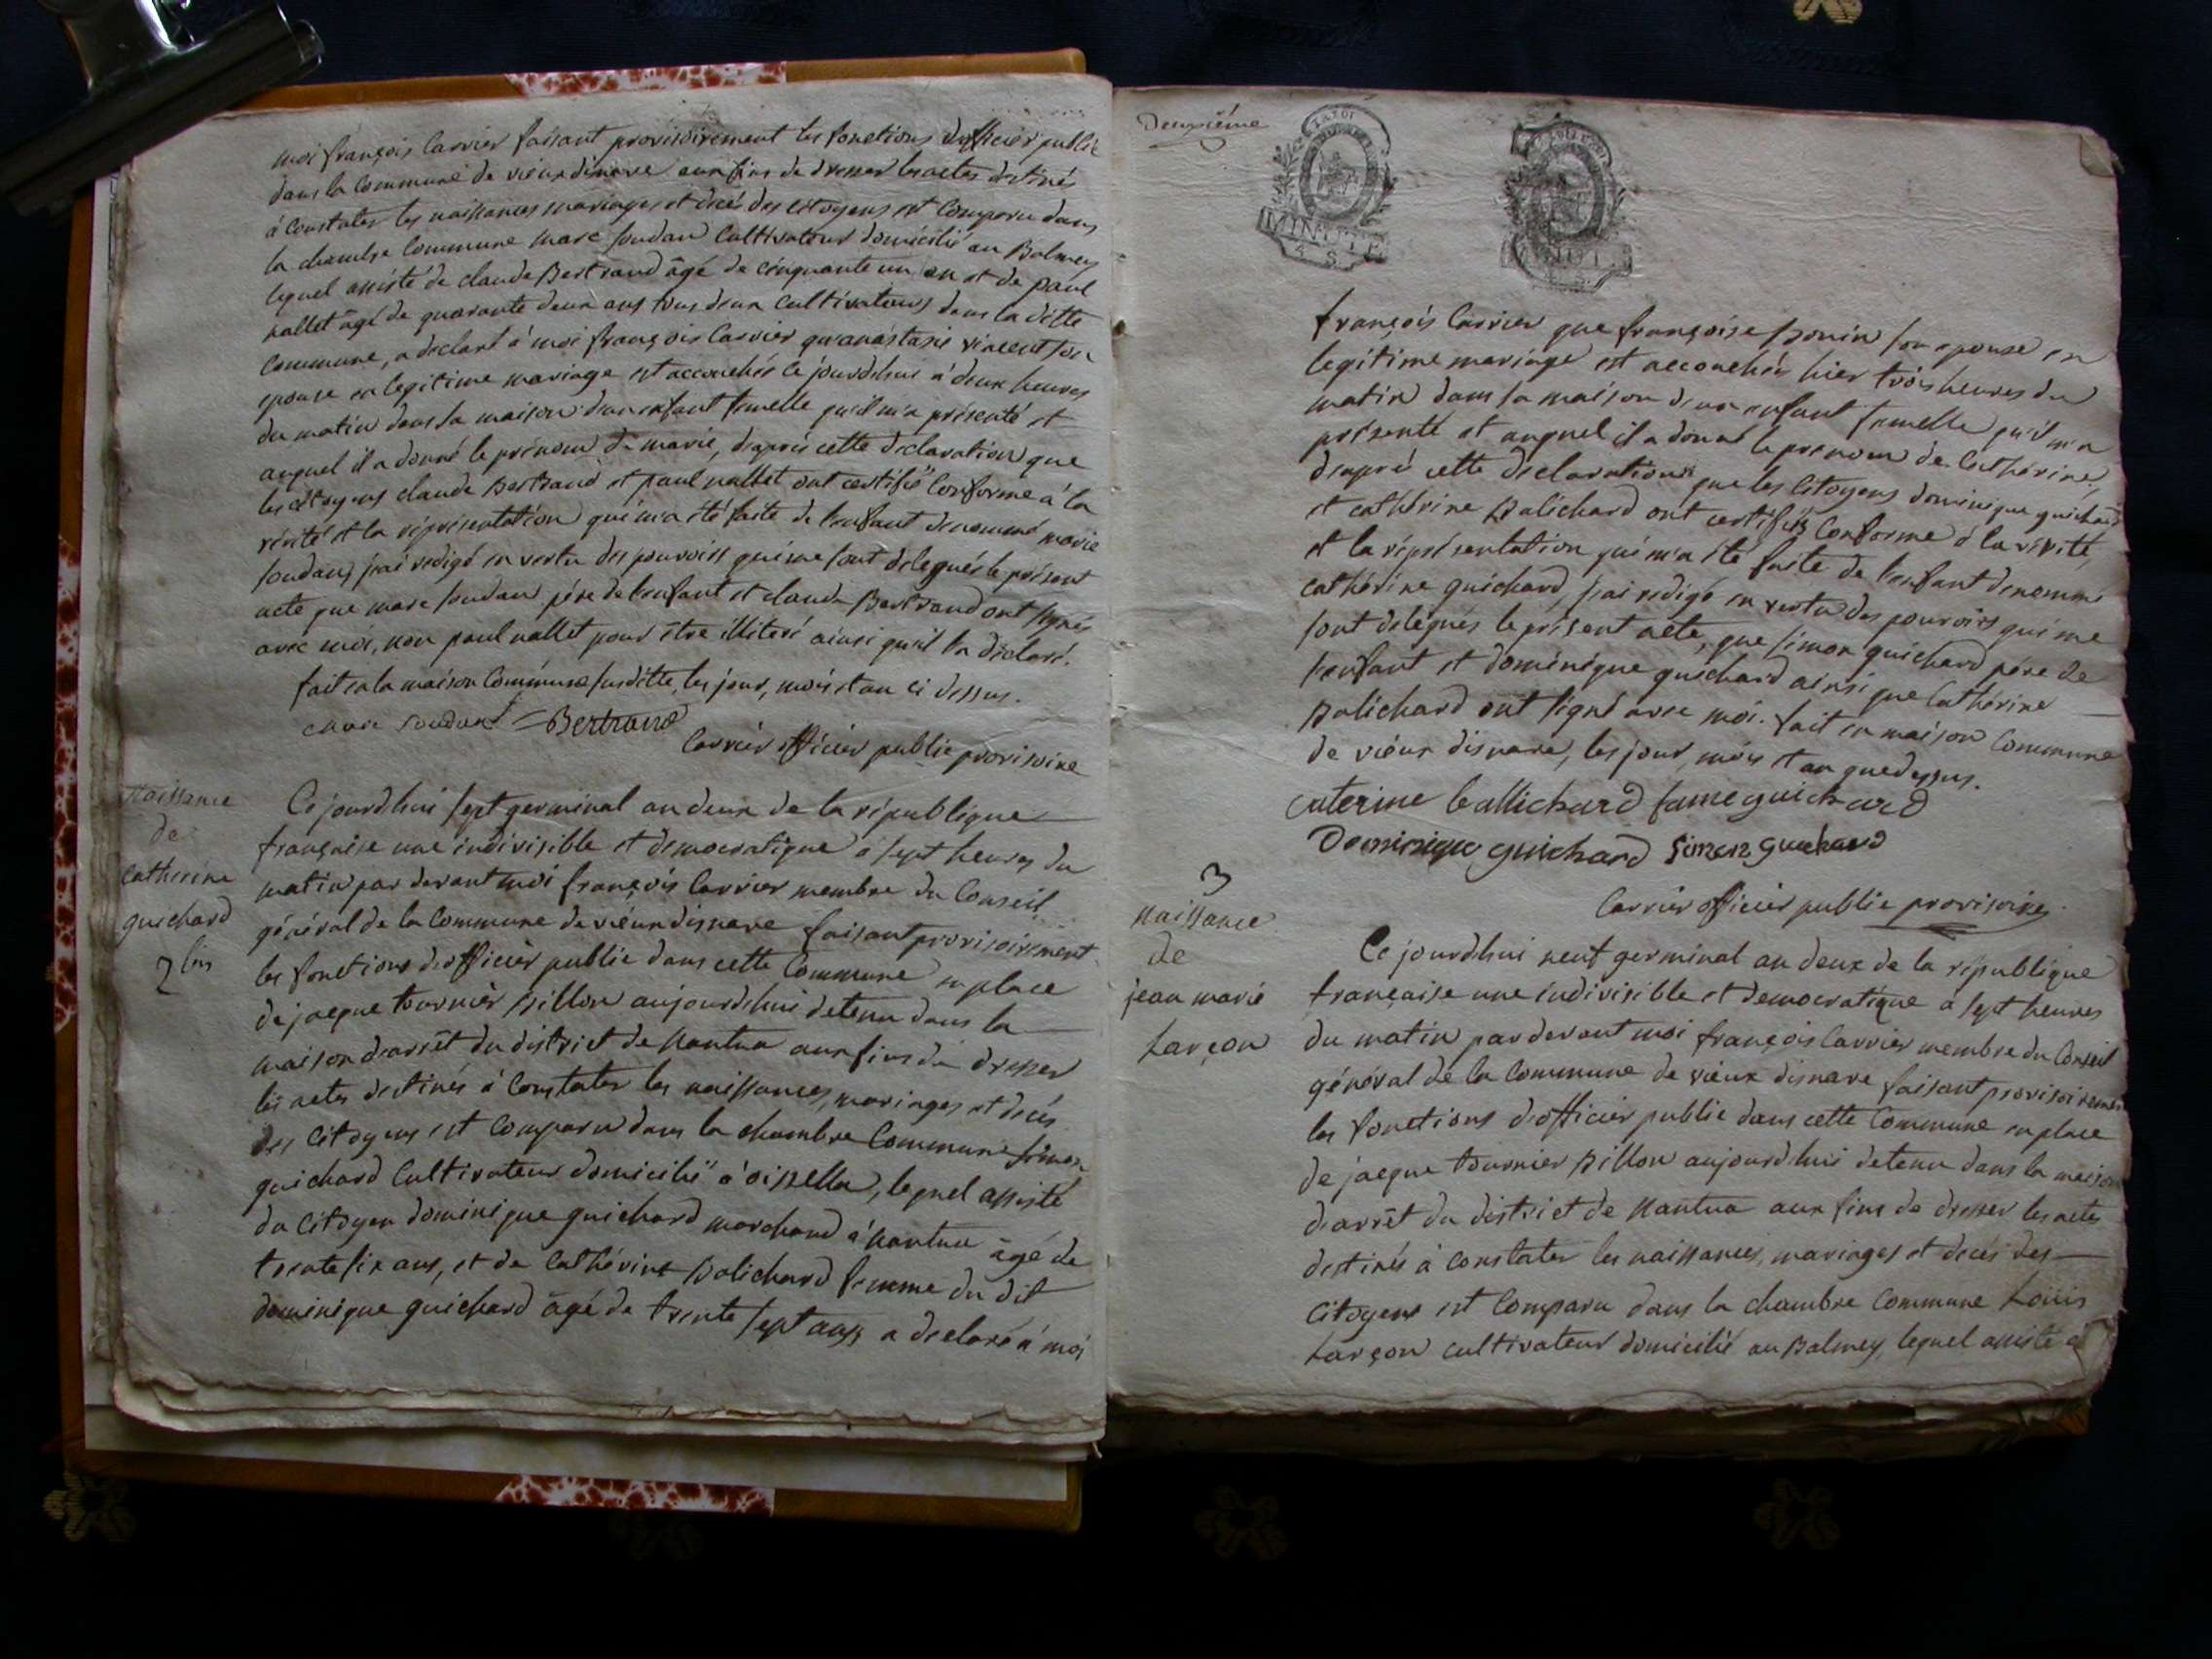 moi françois Carrier faisant provisoirement les fonctions d'officier public
dans la commune de vieux disnave aux fins de dresser les actes destinés
à constater les naissances mariages et décé des citoyens est comparu dans
la chambre commune marc soudan cultivateur domicilié au Balmey
lequel assisté de claude Bertrand âgé de cinquante un an et de paul
nallet âgé de quarante deux ans tous deux cultivateurs dans la ditte
commune, a declaré à moi françois Carrier qu'anastasie vincent son
epouse en legitime mariage est accouchée ce jourdhui à deux heures
du matin dans sa maison d'un enfant femelle qu'il m'a présenté et
auquel il a donné le prénom de marie, d'après cette declaration que
les citoyens claude Bertrand et paul nallet ont certifié conforme à la
vérité et la représentation qui m'a été faite de l'enfant denommé marie
soudan, j'ai redigé en vertu des pouvoirs qui me sont delegués le présent
acte que marc soudan pére de l'enfant et claude Bertrand ont signés
avec moi, non paul nallet pour être illiteré ainsi qu'il l'a déclaré.
fait en la maison commune susditte, les jour, mois et an ci dessus.
Bertrand
Carrier officier public provisoire
Naissance
de
Catherine
guichard
2 bis
Ce jourdhui sept germinal an deux de la république
française une indivisible et democratique à sept heures du
matin par devant moi françois Carrier membre du Conseil
général de la commune de vieux disnave faisant provisoirement
les fonctions d'officier public dans cette Commune en place
de jacque tournier pillon aujourdhui detenu dans la
maison d'arrêt du district de Nantua aux fins de dresser
les actes destinés à constater les naissances, mariages et décés
des citoyens est comparu dans la chambre commune simon
guichard Cultivateur domicilié à oissella, lequel assisté
du citoyen dominique guichard marchand à Nantua âgé de
trente six ans, et de Cathérine palichard femme du dit
dominique guichard âgé de trente sept ans a declaré à moi
Deuxiéme
MINUTE
françois Carrier que françoise ponin son epouse en
legitime mariage est accouchée hier trois heures du
matin dans sa maison d'un enfant femelle qu'il m'a
présenté et auquel il a donné le prenom de Cathérine,
d'après cette declaration que les citoyens dominique guichard
et cathérine palichard ont certifiés conforme à la vérité,
et la réprésentation qui m'a été faite de l'enfant denommé
cathérine guichard, j'ai redigé en vertu des pouvoirs qui me
sont delegués le présent acte, que simon guichard pére de
l'enfant et doménique guichard ainsi que Cathérine
palichard ont signé avec moi. fait en maison Commune
de vieux disnave, les jour, mois et an que dessus.
caterine ballichard fame guichard
Dominique guichard Simon guichard
Carrier officier public provisoire
3
Naissance
de
jean marie
Larçon
Ce jourdhui neuf germinal an deux de la république
française une indivisible et democratique à sept heures
du matin par devant moi françois Carrier membre du Conseil
général de la commune de vieux disnave faisant provisoirement
les fonctions d'officier public dans cette Commune en place
de jacque tournier pillon aujourdhui detenu dans la maison
d'arrêt du district de Nantua aux fins de dresser les actes
destinés à constater les naissances, mariages et décés des
Citoyens est comparu dans la chambre commune Loüis
Larçon cultivateur domicilié au Balmey, lequel assisté